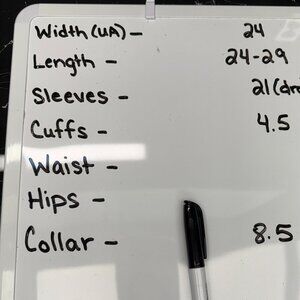 Width (UA) - 24
Length - 24-29
Sleeves - 21 (dro
Cuffs - 4.5
Waist -
Hips -
Collar - 8.5